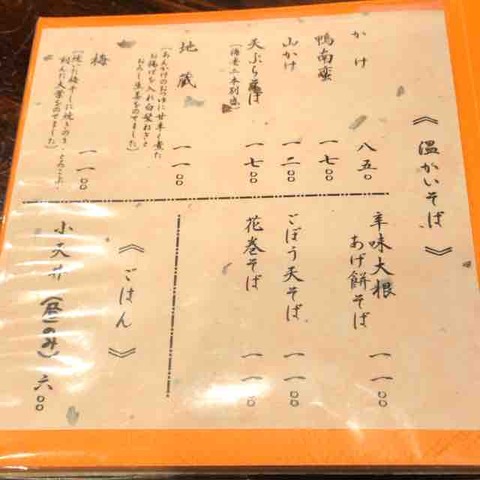 《温かいそば》
かけ 八五〇
鴨南蛮 一七〇〇
山かけ 一二〇〇
天ぷらそば 一七〇〇
(海老二本別盛)
地蔵 一一〇〇
お揚げを入れ白髪ねぎと
おろし生姜をのせました)
梅 一一〇〇
辛味大根
あげ餅そば 一一〇〇
ごぼう天そば 一一〇〇
花巻そば 一一〇〇
《ごはん》
小天丼(昼のみ) 六〇〇